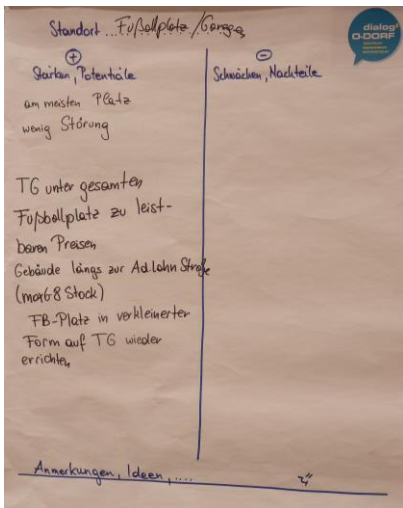 Standort ... Fußballplatz/Garage
dialog!
O-DORF
+
Stärken, Potentiale
-
Schwächen, Nachteile
am meisten Platz
wenig Störung
TG unter gesamten
Fußballplatz zu leist-
baren Preisen
Gebäude längs zur Ad.Lohn Straße
(max 6-8 Stock)
FB-Platz in verkleinerter
Form auf TG wieder
errichten
Anmerkungen, Ideen, ....